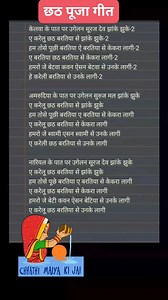 छठ पूजा गीत
केलवा के पात पर उगेलन सुरज देव झांके झुके-2
ए करेलु छठ बरतिया से झांके झुके
हम तोसे पूछी बरतिया ऐ बरतिया से केकरा लागी-2
ए करेलू छठ बरतिया से केकरा लागी-2
हमरो जे बेटवा कवन ऐसन बेटवा से उनके लागी-2
हे करेली बरतिया से उनके लागी-2
अमरुदिया के पात पर उगेलन सुरुज मल झांके झुके
ए करेलु छठ बरतिया से झांके झुके
हम तोसे पूछी बरतिया ऐ बरतिया से केकरा लागी
ए करेलू छठ बरतिया से केकरा लागी
हमरो जे स्वामी एसन स्वामी से उनके लागी
ए करेलू छठ बरतिया से उनके लागी
नारियल के पात पर उगेलन सूरज देव झांके झुके
ए करेलू छठ बरतिया से झांके झुके
हम तोसे पूछे बरतिया ए बरतिया से केकरा लागी
ए करेलू छठ बरतिया से केकरा लागी
हमरो जे बेटी कवन ऐसन बेटिया से उनके लागी
ए करेलू छठ बरतिया से उनके लागी
CHHATHI MAIYA KI JAI